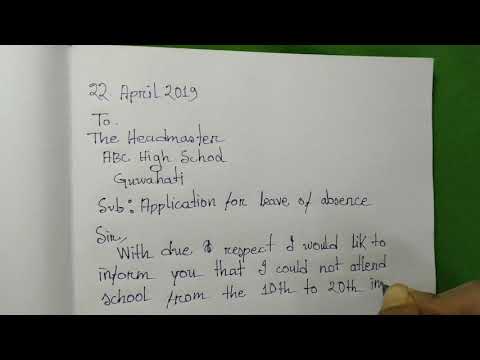 22 April 2019
To.
The Headmaster
ABC High School
Guwahati
Sub: Application for leave of absence
Sir,
With due respect I would lik to
inform you that I could not attend
school from the 10th to 20th in